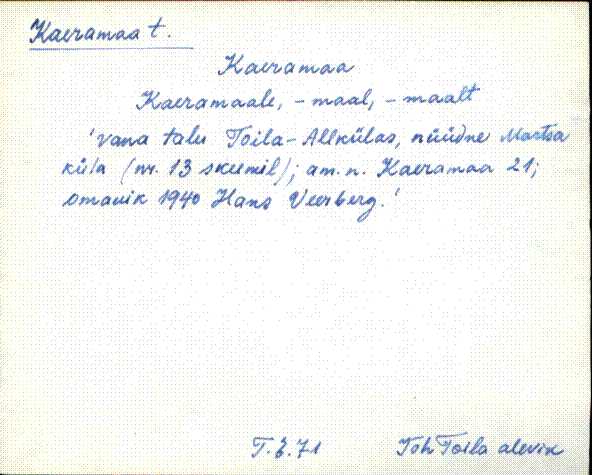 Kaeramaa t.
Kaeramaa
Kaeramaale, -maal, -maalt
'vana talu Toila-Allkülas, nüüdne Martsa
küla (nr. 13 skeemil); am. n. Kaeramaa 21;
omanik 1940 Hans Veerberg.'
T. E. 71 Joh Toila alevik